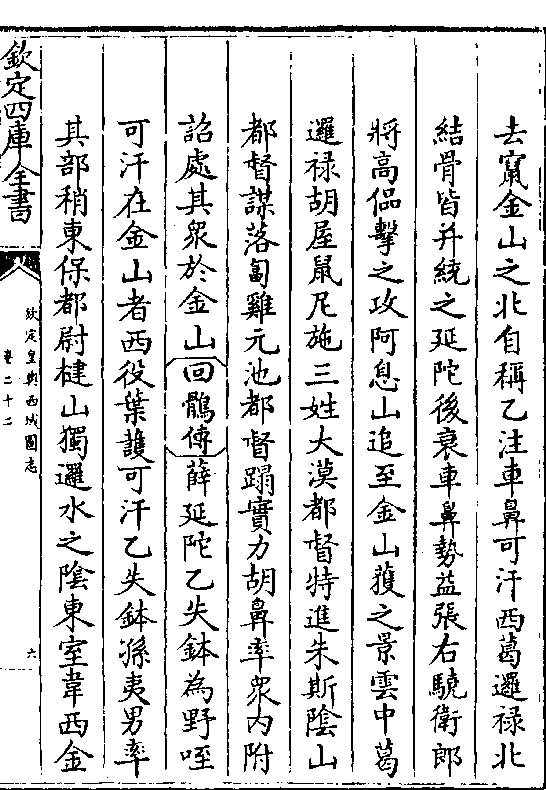 去竄金山之北自稱乙注車鼻可汗西葛邏禄北
結骨皆并統之延陀後衰車鼻勢益張右驍衛郎
將高偘擊之攻阿息山追至金山獲之景雲中葛
邏禄胡屋鼠尼施三姓大漠都督特進朱斯陰山
都督謀落匐雞元池都督蹋實力胡鼻率衆内附
詔處其衆於金山回鶻傳薛延陀乙失鉢為野咥
可汗在金山者西役葉䕶可汗乙失鉢孫夷男率
其部稍東保都尉揵山獨邏水之陰東室韋西金
欽定四庫全書
欽定皇輿西域圖志
卷二十二
六